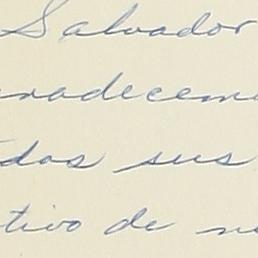 Salvador
radecem
dos sus
tivo de n